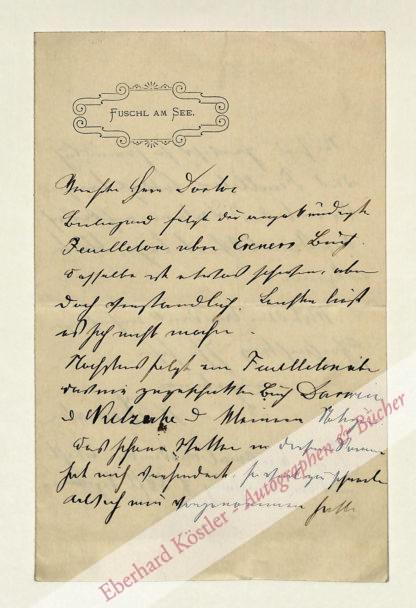 FUSCHL AM SEE.
Verehrter Herr Doctor
Beiliegend folgt das angekündigte
Feuilleton über Exners Buch.
Dasselbe ist etwas schwer, aber
doch verständlich. Leichter ließ
es sich nicht machen.
Nächstens folgt ein Feuilleton über
das mir zugeschickte Buch Darwin
& Nietzsche &
das schöne Wetter in diesem
hat mich verhindert, so viel zu schreiben
als ich mir vorgenommen hatte
Eberhard Köstler - Autographen & Bücher